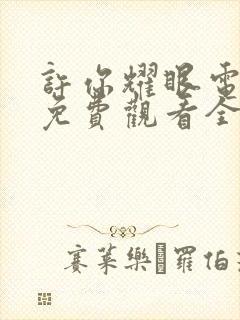 許你耀眼電
免費觀看全
賽萊樂 羅伯